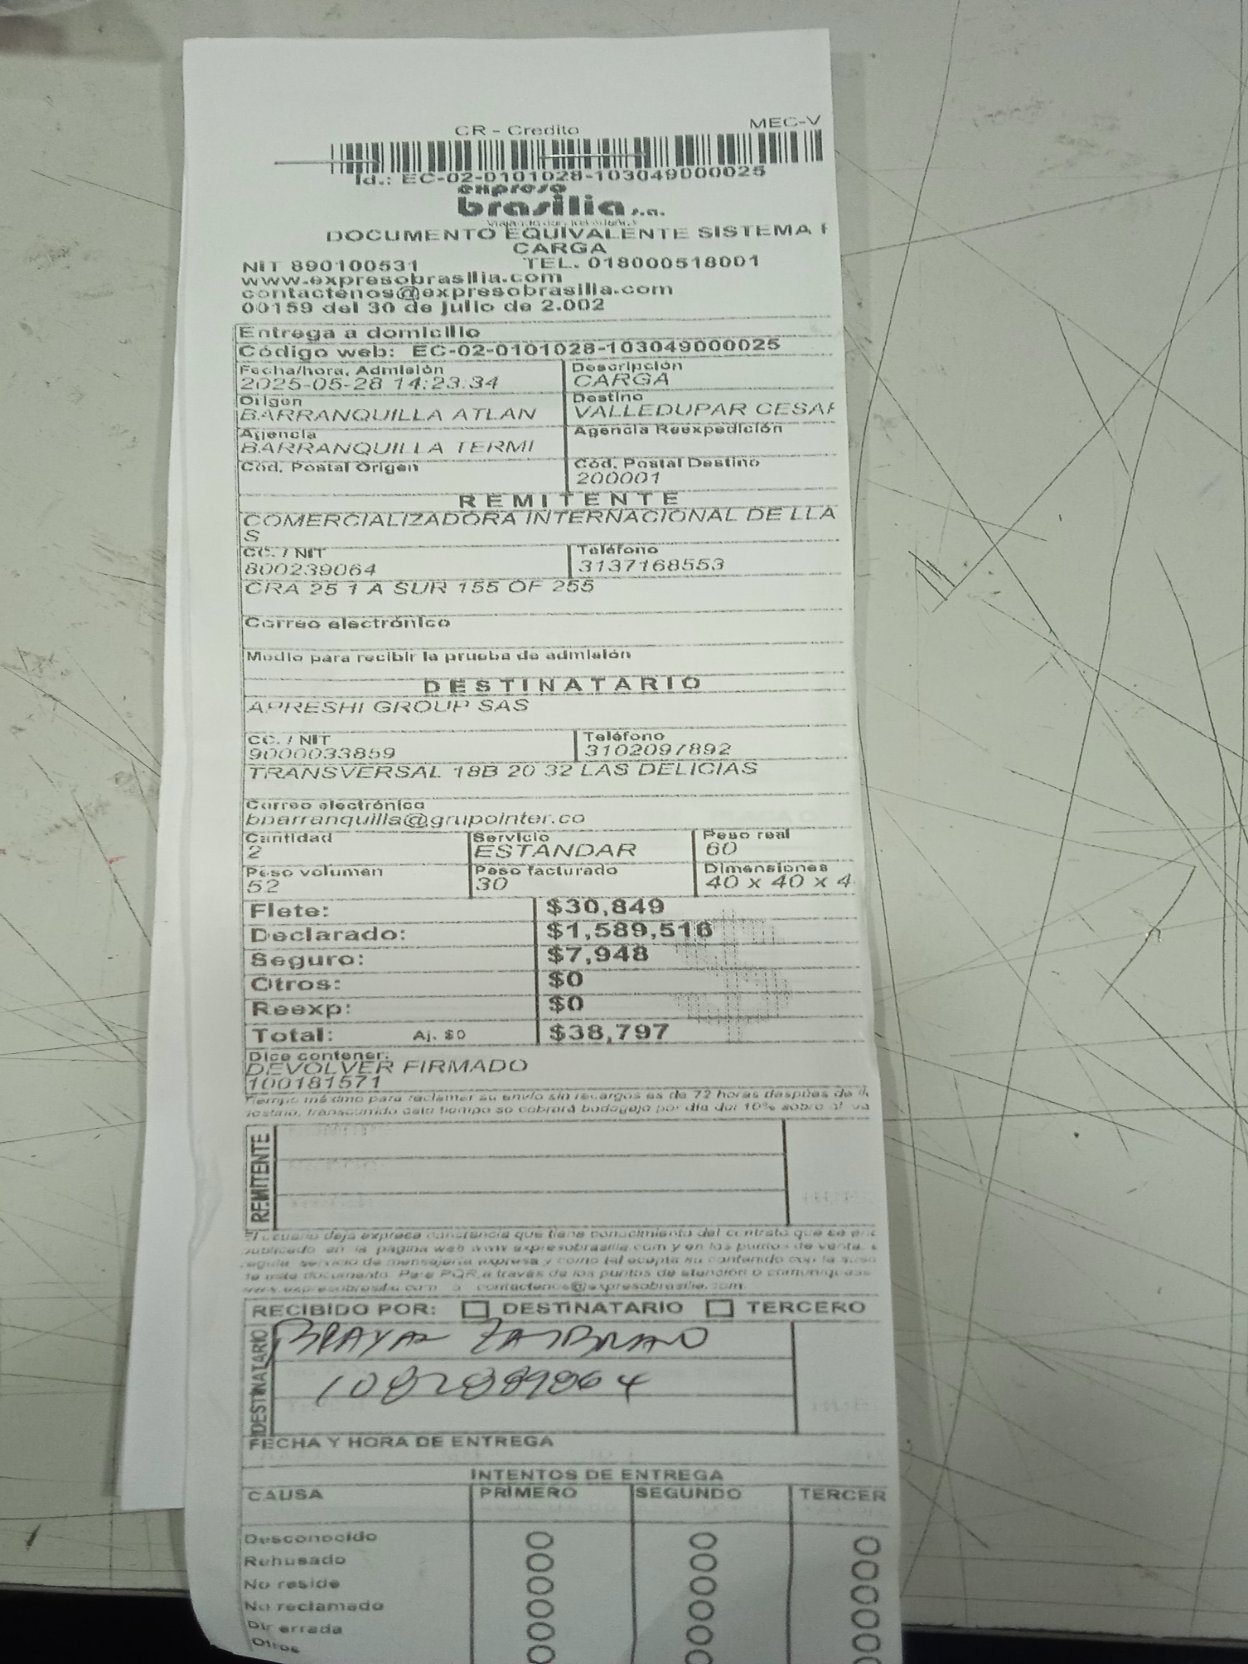 CR - Credito MEC-V
Id.: EC-02-0101028-103049000025
expreso
brasilia s.a.
DOCUMENTO EQUIVALENTE SISTEMA
CARGA
NIT 890100531 TEL. 018000518001
www.expresobrasilia.com
contactenos@expresobrasilia.com
00159 del 30 de julio de 2.002
Entrega a domicilio
Código web: EC-02-0101028-103049000025
Fecha/hora, Admisión Descripción
2025-05-28 14:23:34 CARGA
Origen Destino
BARRANQUILLA ATLAN VALLEDUPAR CESAR
Agencia Agencia Reexpedición
BARRANQUILLA TERMI
Cód. Postal Origen Cód. Postal Destino
200001
REMITENTE
COMERCIALIZADORA INTERNACIONAL DE LLA
S
CC. / NIT Teléfono
800239064 3137168553
CRA 25 1 A SUR 155 OF 255
Correo electrónico
Medio para recibir la prueba de admisión
DESTINATARIO
APRESHI GROUP SAS
CC. / NIT Teléfono
9000033859 3102097892
TRANSVERSAL 18B 20 32 LAS DELICIAS
Correo electrónico
bnarranquilla@grupointer.co
Cantidad Servicio Peso real
2 ESTANDAR 60
Peso volumen Peso facturado Dimensiones
52 30 40 x 40 x 4
Flete: $30,849
Declarado: $1,589,516
Seguro: $7,948
Otros: $0
Reexp: $0
Total: Aj. $0 $38,797
Dice contener:
DEVOLVER FIRMADO
100181571
Tiempo máximo para reclamar su envío sin recargos es de 72 horas después de
transcurrido este tiempo se cobrará bodegaje por día del 10% sobre el va
REMITENTE
El usuario deja expresa constancia que tiene conocimiento del contrato que se
publicado en la página web www.expresobrasilia.com y en los puntos de venta,
regula servicio de mensajería expresa y como tal acepta su contenido con la
este documento. Para PQR a través de los puntos de atención o
o contactenos@expresobrasilia.com
RECIBIDO POR: DESTINATARIO TERCERO
DESTINATARIO
BRAYAN ZAMBRANO
1082889864
FECHA Y HORA DE ENTREGA
INTENTOS DE ENTREGA
CAUSA PRIMERO SEGUNDO TERCER
Desconocido
Rehusado
No reside
No reclamado
Dir errada
Otros